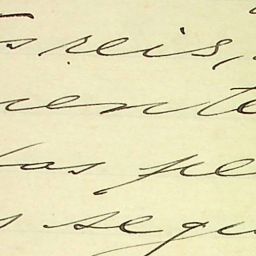 reis,
ente
as pe
s segu